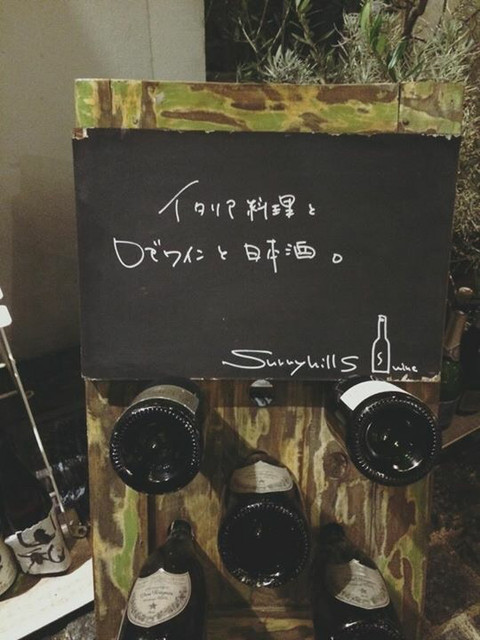 イタリア料理と
ロゼワインと日本酒。
Sunnyhills
S
wine